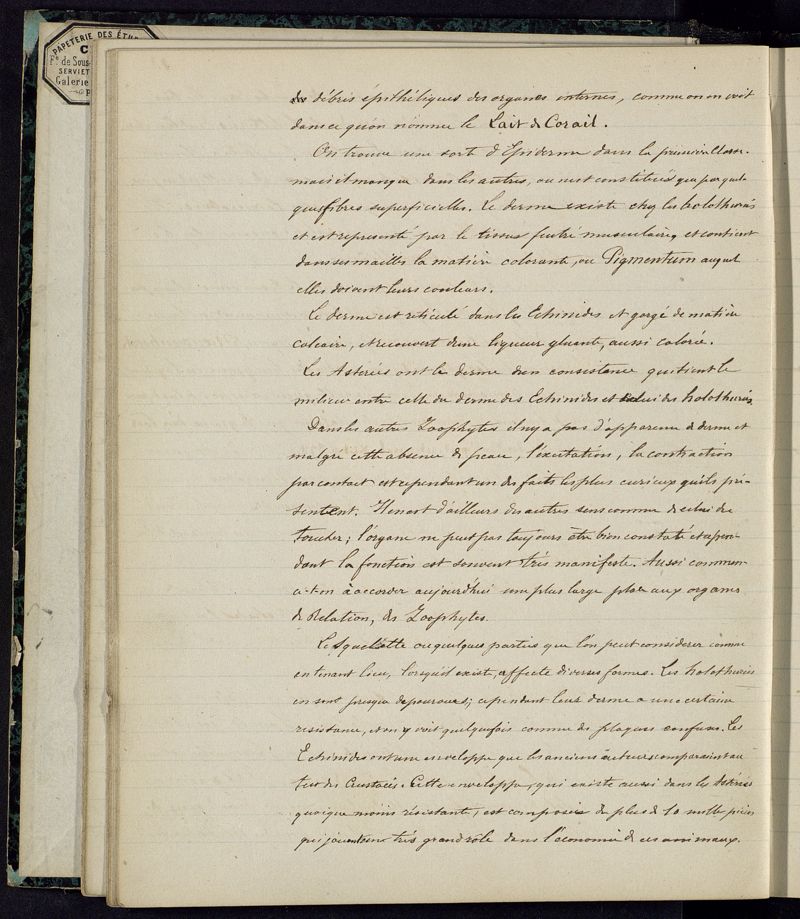 PAPETERIE DES ÉTU
C
Fg de Sous-
SERVIET
Galerie
P
des débris épithéliques des organes internes, comme on en voit
dans ce qu'on nomme le Lait de Corail.
On trouve une sorte d'Epiderme dans la première Classe.
mais il manque dans les autres, ou n'est constitué que par quel-
ques fibres superficielles. Le derme existe chez les holothuries
et est représenté par le tissus feutré musculaire, et contient
dans ses mailles la matière colorante, ou Pigmentum auquel
elles doivent leurs couleurs.
Le derme est réticulé dans les Echinides et gorgé de matière
calcaire, et recouvert d'une liqueur gluante, aussi colorée.
Les Asteries ont le derme d'un consistance qui tient le
milieu entre celle du derme des Echinides et celui des holothuries
Dans les autres Zoophytes il n'y a pas d'apparence de derme et
malgré cette absence de peau, l'excitation, la contraction
par contact est cependant un des faits les plus curieux qu'ils pré-
sentent. Il en est d'ailleurs des autres sens comme de celui du
Toucher; l'organe ne peut pas toujours être bien constaté et cepen-
dant la fonction est souvent très manifeste. Aussi commen-
ce-t-on à accorder aujourd'hui une plus large place aux organes
de Relation, des Zoophytes.
Le Squelette ou quelques parties que l'on peut considérer comme
en tenant lieu, lorsqu'il existe, affecte diverses formes. Les holothuries
en sont presque dépourvues; cependant leur derme a une certaine
resistance, et on y voit quelquefois comme des plaques confuses. Les
Echinides ont une enveloppe que les anciens auteurs comparaient au
test des Crustacés. Cette enveloppe, qui existe aussi dans les Astéries
quoique moins résistante, est composée de plus de 10 mille pièces
qui jouent un très grand rôle dans l'économie de ces animaux.